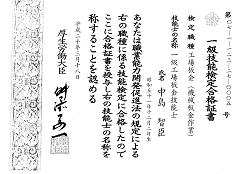 第07-1-023-12-0005号
一級技能検定合格証書
検定職種 工場板金(機械板金作業)
技能士の名称 一級工場板金技能士
氏名 中島
昭和五十一年十二月二日生
あなたは職業能力開発促進法の規定による
右の職種に係る技能検定に合格したので
ここに合格証書を授与し右の技能士の名称を
称することを認める
平成二十年三月十八日
厚生労働大臣